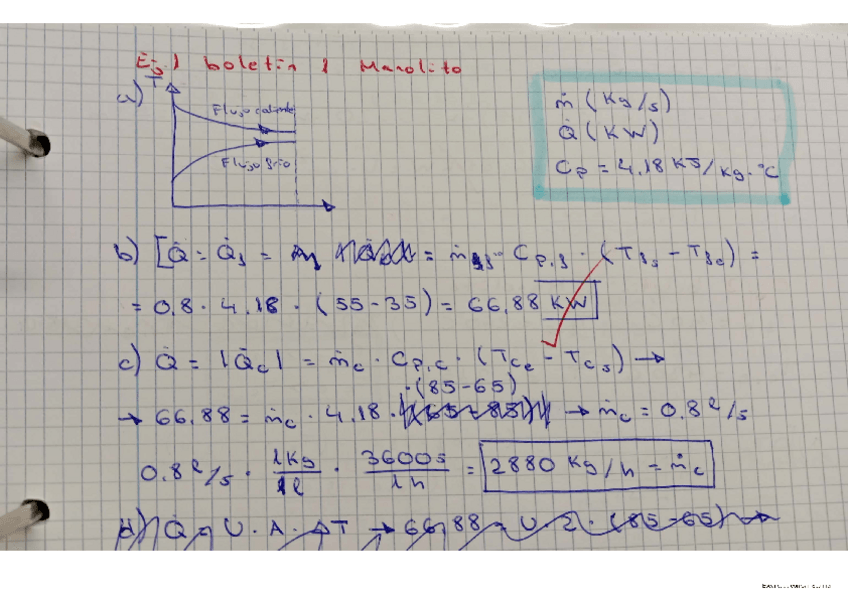 Ej. 1 boletín 1 Manolito
a) T
Flujo caliente
Flujo frío
ṁ (Kg/s)
Q̇ (KW)
Cp = 4.18 KJ/Kg·°C
b) [Q̇ = Q̇f = ṁf · Cp,f · (Tfs - Tfe) =
= 0.8 · 4.18 · (55-35) = 66.88 KW
c) Q̇ = |Q̇c| = ṁc · Cp,c · (Tce - Tcs) →
·(85-65)
→ 66.88 = ṁc · 4.18 · |(65-85)| → ṁc = 0.8 ℓ/s
0.8 ℓ/s · 1Kg/1ℓ · 3600s/1h = 2880 Kg/h = ṁc
d) Q̇ = U · A · ΔT → 66,88 = U · 2 · (85-65) →